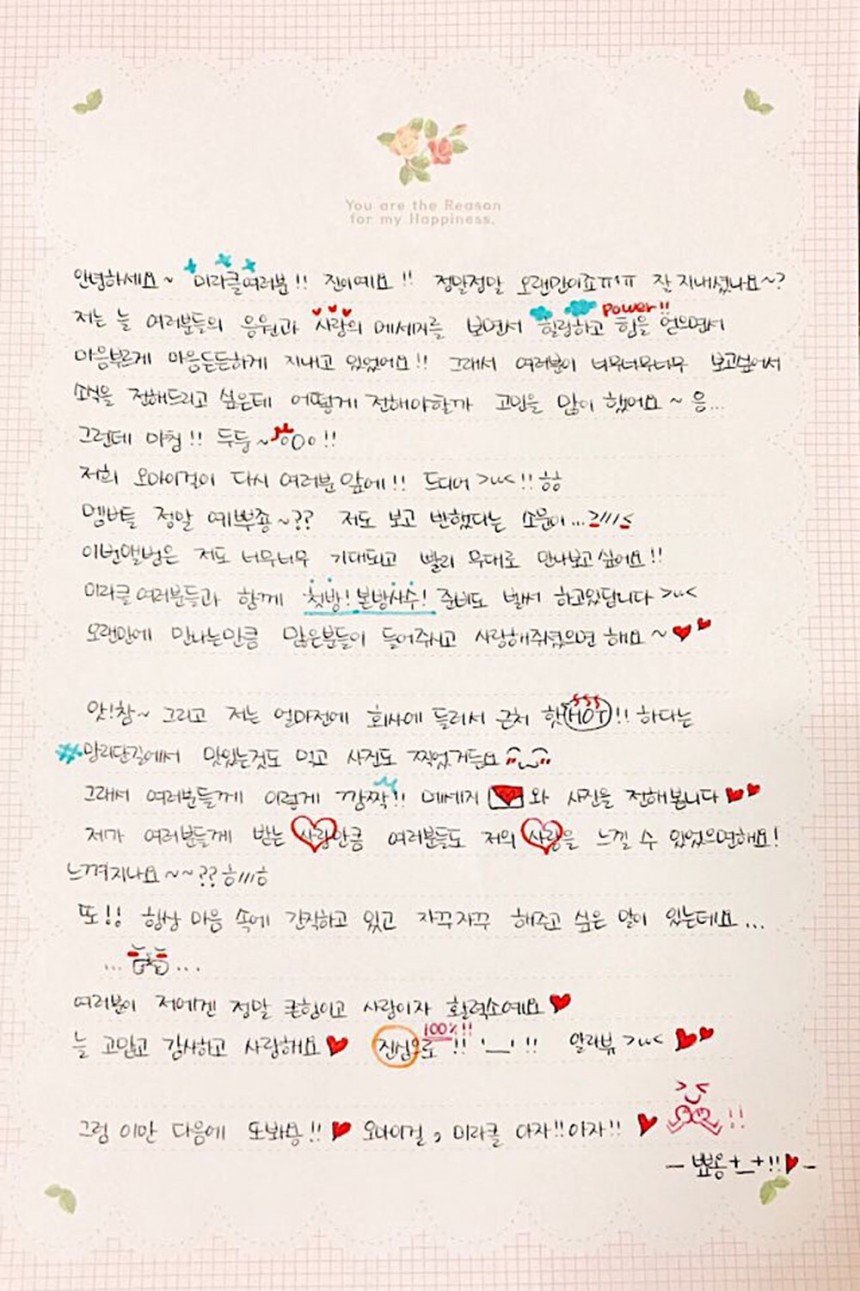 You are the Reason
for my Happiness.
안녕하세요~ 미라클여러분!! 진이예요!! 정말정말 오랜만이죠ㅠㅠ 잘 지내셨나요~?
저는 늘 여러분들의 응원과 사랑의 메세지를 보면서 힐링하고 힘을 얻으면서
power!!
마음부르게 마음든든하게 지내고 있었어요!! 그래서 여러분이 너무너무너무 보고싶어서
소식을 전해드리고 싶은데 어떻게 전해야할까 고민을 많이 했어요~ 음...
그런데 마침!! 두둥~ !!
저희 오마이걸이 다시 여러분 앞에!! 드디어 >ㅆ<!! ㅎㅎ
멤버들 정말 예쁘죵~?? 저도 보고 반했다는 소문이...≥///≤
이번앨범은 저도 너무너무 기대되고 빨리 무대로 만나보고싶어요!!
미라클여러분들과 함께 첫방! 본방사수! 준비도 벌써 하고있답니다 >ㅆ<
오랜만에 만나는만큼 많은분들이 들어주시고 사랑해주셨으면 해요~♥♥
앗!참~ 그리고 저는 얼마전에 회사에 들러서 근처 핫HOT!! 하다는
#망리단길에서 맛있는것도 먹고 사진도 찍었거든요
그래서 여러분들께 이렇게 깜짝!! 메세지 와 사진을 전해봅니다♥♥
제가 여러분들께 받는 사랑만큼 여러분들도 저의 사랑을 느낄 수 있었으면해요!
느껴지나요~~?? ㅎ///ㅎ
또!! 항상 마음 속에 간직하고 있고 자꾸자꾸 해주고 싶은 말이 있는데요...
... ...
여러분이 저에겐 정말 큰힘이고 사랑이자 활력소예요♥
늘 고맙고 감사하고 사랑해요♥ 진심으로!! '__' !! 알라뷰 >ㅆ< ♥♥
100%!!
그럼 이만 다음에 또봐용!!♥ 오마이걸, 미라클 아자!!아자!! ♥ !!
- 뾰옹+_+!!♥-